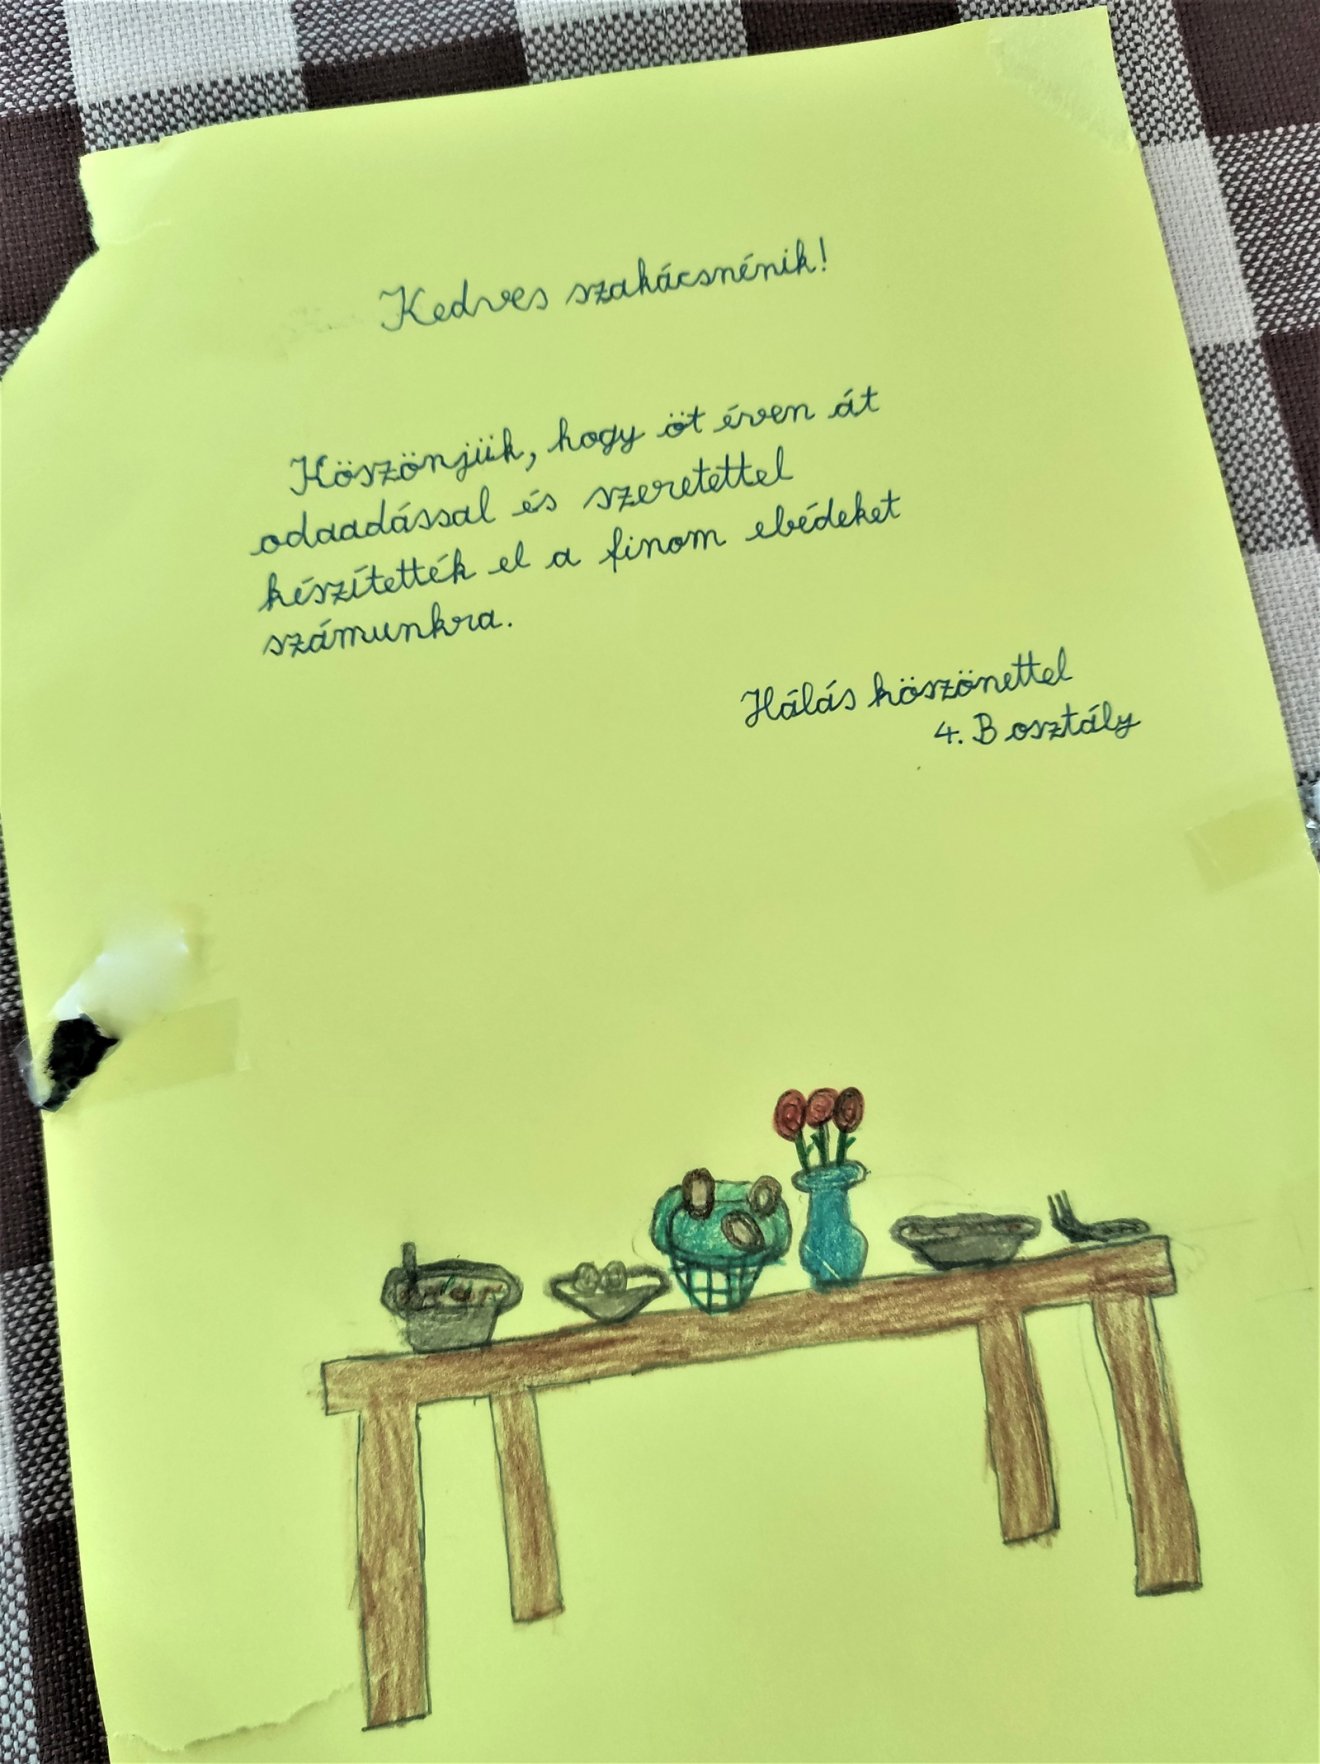 Kedves szakácsnénik!
Köszönjük, hogy öt éven át
odaadással és szeretettel
készítették el a finom ebédeket
számunkra.
Hálás köszönettel
4. B osztály